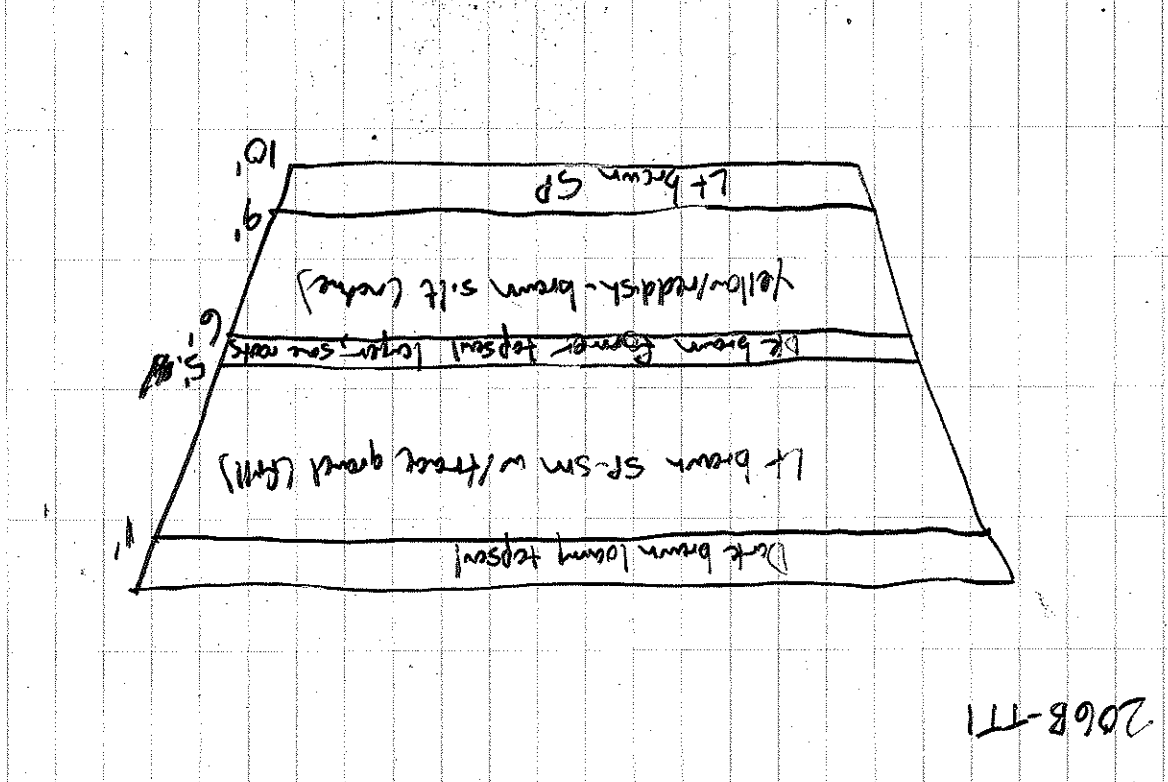 206B-TT1
Dark brown loamy topsoil
1'
Lt brown SP-SM w/trace gravel (fill)
5'
Dk brown former topsoil layer, some roots
6'
Yellow/reddish-brown silt (native)
9'
Lt brown SP
10'